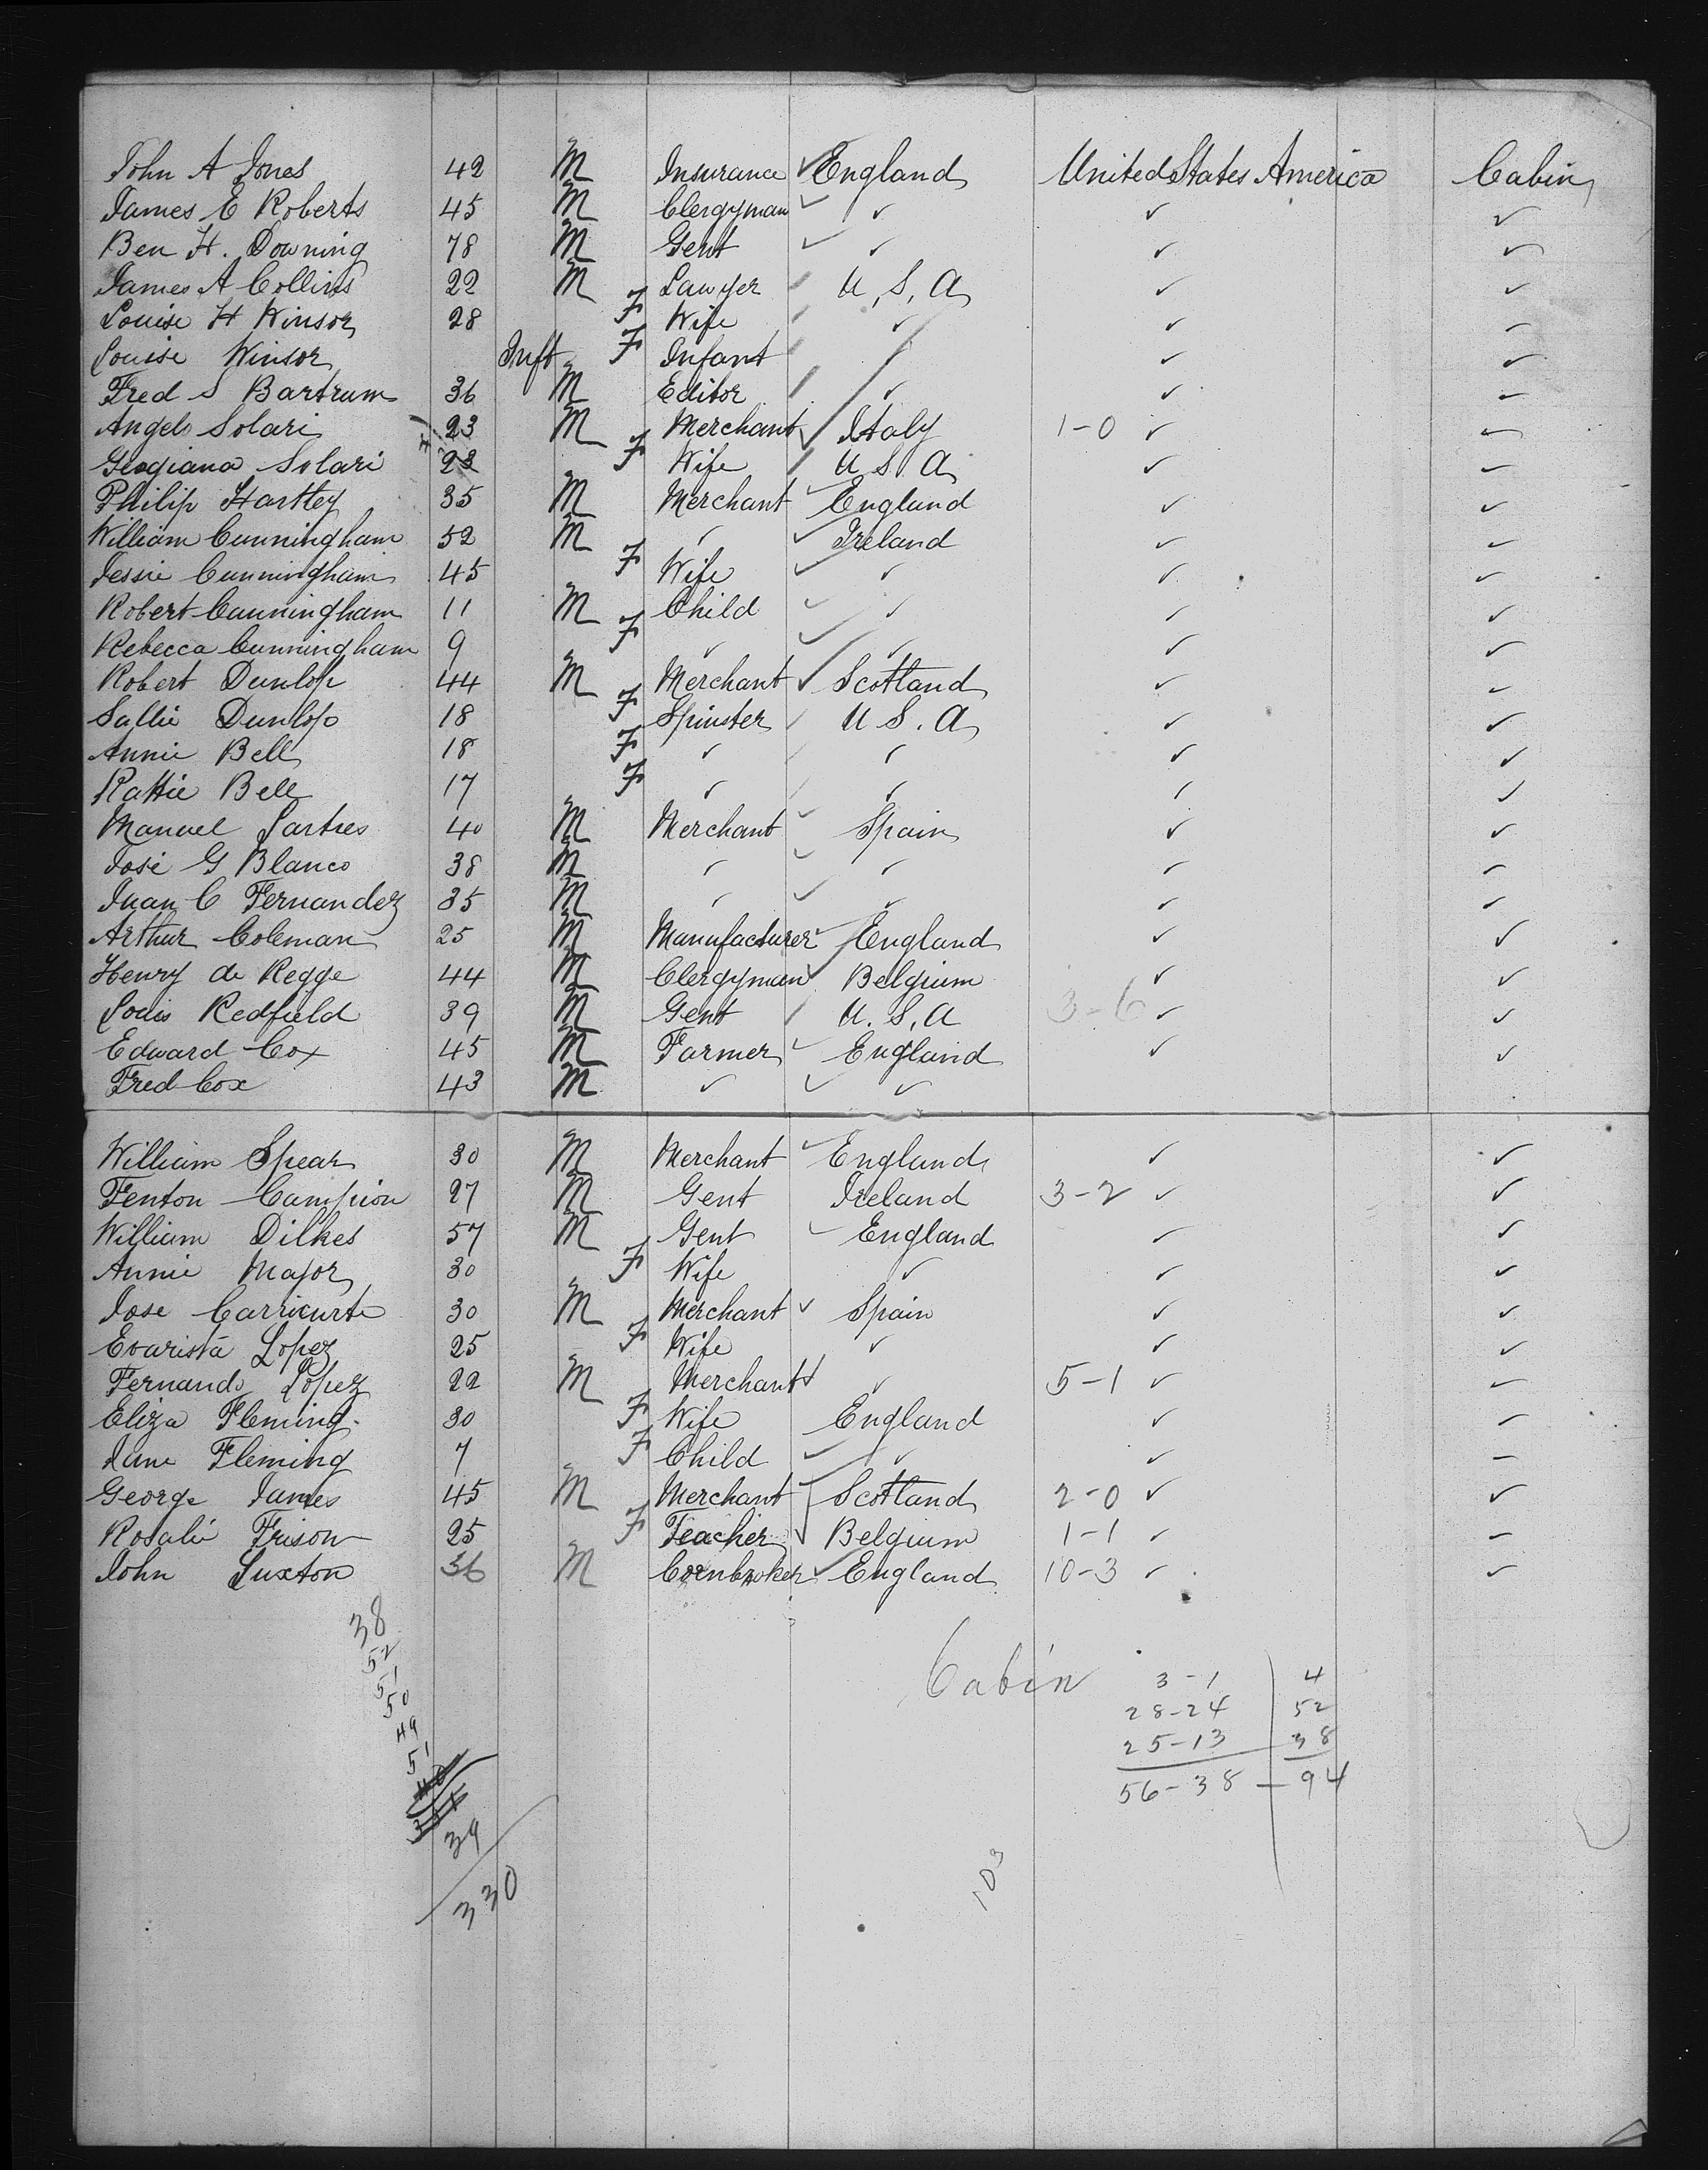 John A Jones 42 M Insurance ✓ England United States America Cabin
James E Roberts 45 M Clergyman ✓ ✓ ✓ ✓
Ben H. Downing 78 M Gent ✓ ✓ ✓ ✓
James A Collins 22 M Lawyer U, S, A ✓ ✓
Louise H Winsor 28 F Wife ✓ ✓ ✓
Louise Winsor Inft F Infant ✓ ✓
Fred S Bartrum 36 M Editor ✓ ✓ ✓
Angelo Solari 23 M Merchant Italy 1-0 ✓ ✓
Geogiana Solari 23 F Wife U S A ✓ ✓
Philip Hartley 35 M Merchant ✓ England ✓ ✓
William Cunningham 52 M ✓ ✓ Ireland ✓ ✓
Jessie Cunningham 45 F Wife ✓ ✓ ✓ ✓
Robert Cunningham 11 M Child ✓ ✓ ✓ ✓
Rebecca Cunningham 9 F ✓ ✓ ✓ ✓ ✓
Robert Dunlop 44 M Merchant ✓ Scotland ✓ ✓
Sallie Dunlop 18 F Spinster U S. A ✓ ✓
Annie Bell 18 F ✓ ✓ ✓ ✓
Rattie Bell 17 F ✓ ✓ ✓ ✓
Manuel Sartres 40 M Merchant ✓ Spain ✓ ✓
José G Blanco 38 M ✓ ✓ ✓ ✓ ✓
Juan C Fernandez 35 M ✓ ✓ ✓ ✓ ✓
Arthur Coleman 25 M Manufacturer ✓ England ✓ ✓
Henry de Regge 44 M Clergyman ✓ Belgium ✓ ✓
Louis Redfield 39 M Gent U. S. A 3-6 ✓ ✓
Edward Cox 45 M Farmer ✓ England ✓ ✓
Fred Cox 43 M ✓ ✓ ✓
William Spear 30 M Merchant ✓ England ✓ ✓
Fenton Campion 27 M Gent Ireland 3-2 ✓ ✓
William Dilkes 57 M Gent ✓ England ✓ ✓
Annie Major 30 F Wife ✓ ✓ ✓
Jose Carricurte 30 M Merchant ✓ Spain ✓ ✓
Evarista Lopez 25 F Wife ✓ ✓ ✓
Fernando Lopez 22 M Merchant ✓ ✓ 5-1 ✓ ✓
Eliza Fleming 30 F Wife England ✓ ✓
Jane Fleming 7 F Child ✓ ✓ ✓ ✓
George James 45 M Merchant ✓ Scotland 2-0 ✓ ✓
Rosalie Frison 25 F Teacher ✓ Belgium 1-1 ✓ ✓
John Luxton 36 M Cornbroker ✓ England 10-3 ✓ ✓
38
52
51
50
49
51
39
330
Cabin 3-1 4
28-24 52
25-13 38
56-38 — 94
103